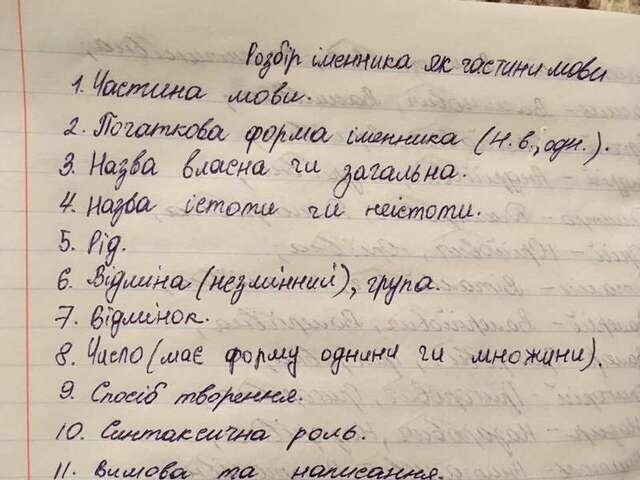 Розбір іменника як частини мови
1. Частина мови.
2. Початкова форма іменника (Н.в., одн.).
3. Назва власна чи загальна.
4. Назва істоти чи неістоти.
5. Рід.
6. Відміна (незмінний), група.
7. Відмінок.
8. Число (має форму однини чи множини).
9. Спосіб творення.
10. Синтаксична роль.
11. Вимова та написання.